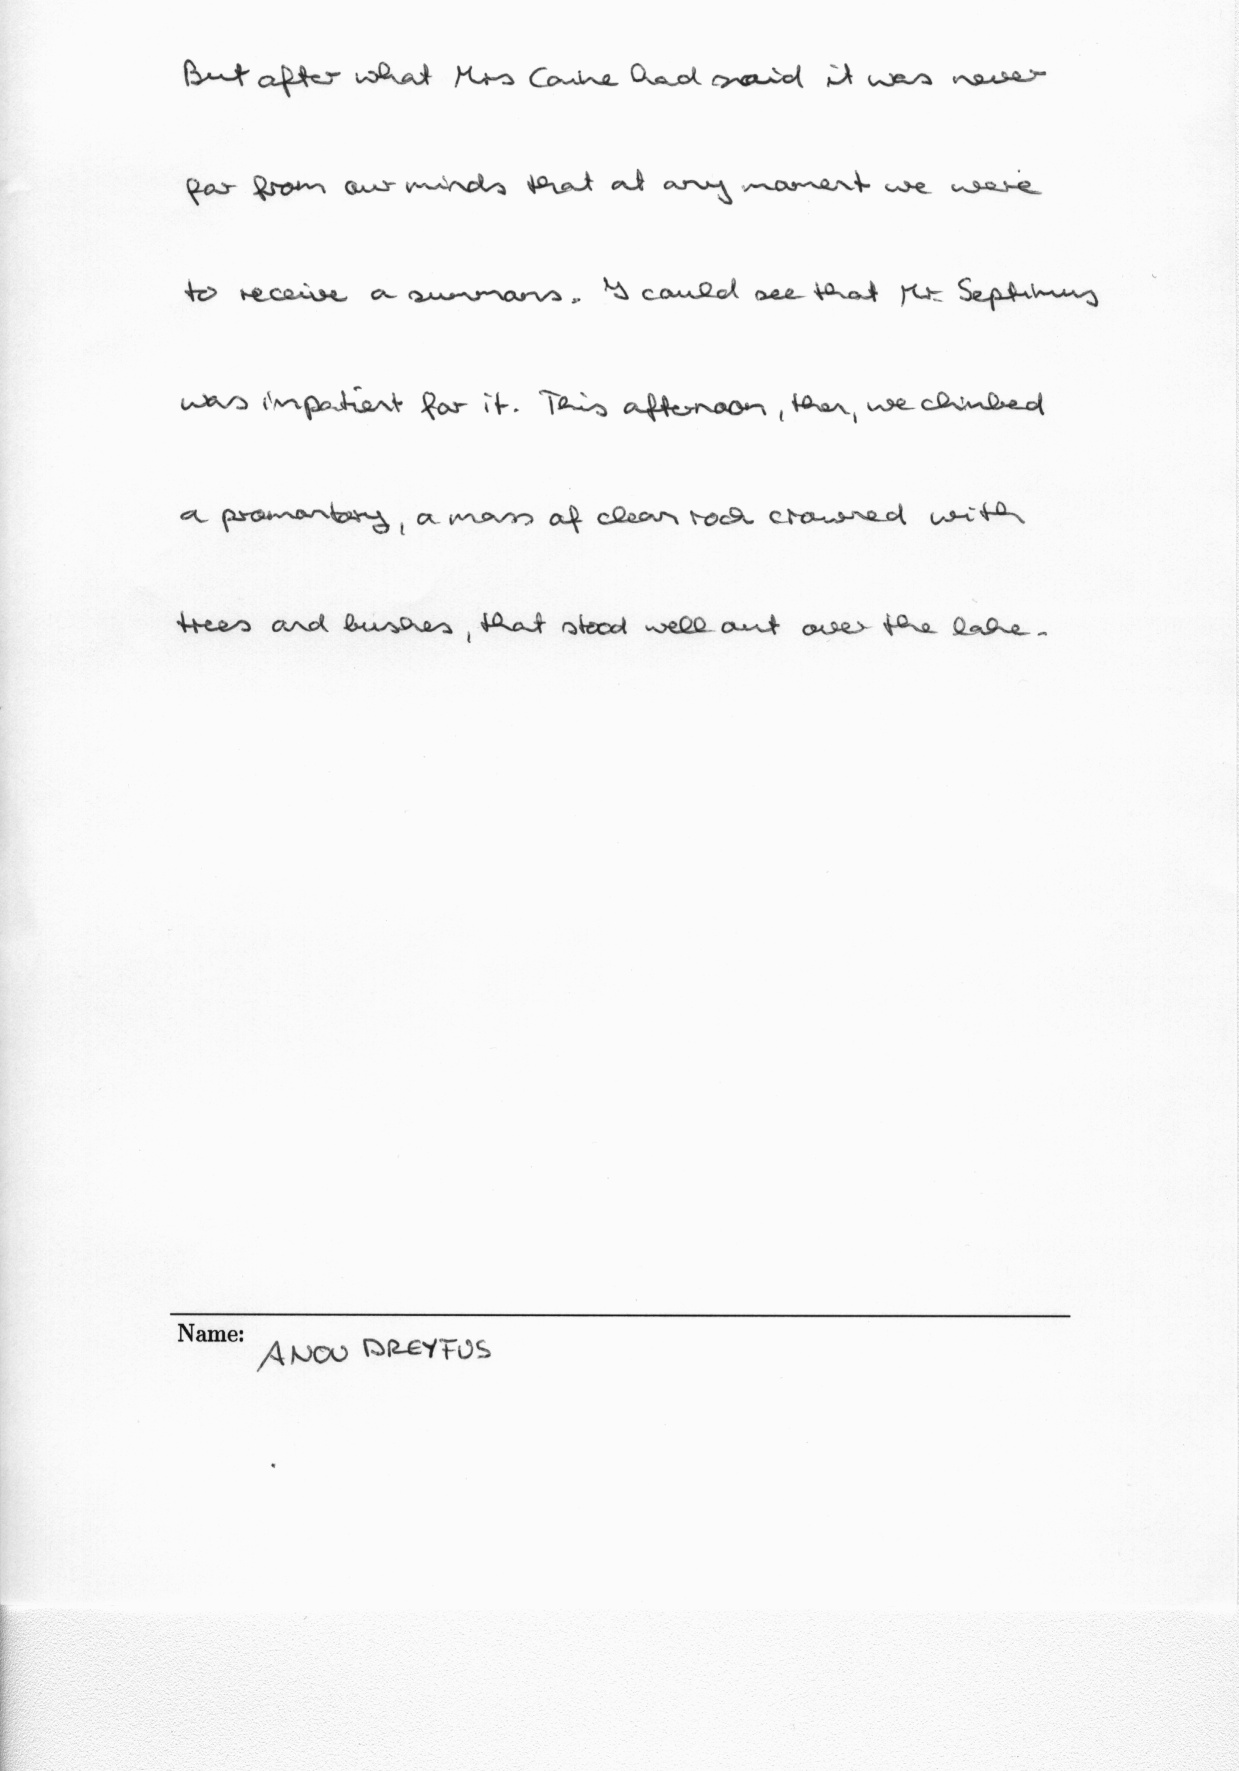 But after what Mrs Caine had said it was never
far from our minds that at any moment we were
to receive a summons. I could see that Mr. Septimus
was impatient for it. This afternoon, then, we climbed
a promontory, a mass of clean rock crowned with
trees and bushes, that stood well out over the lake.
Name: ANOU DREYFUS